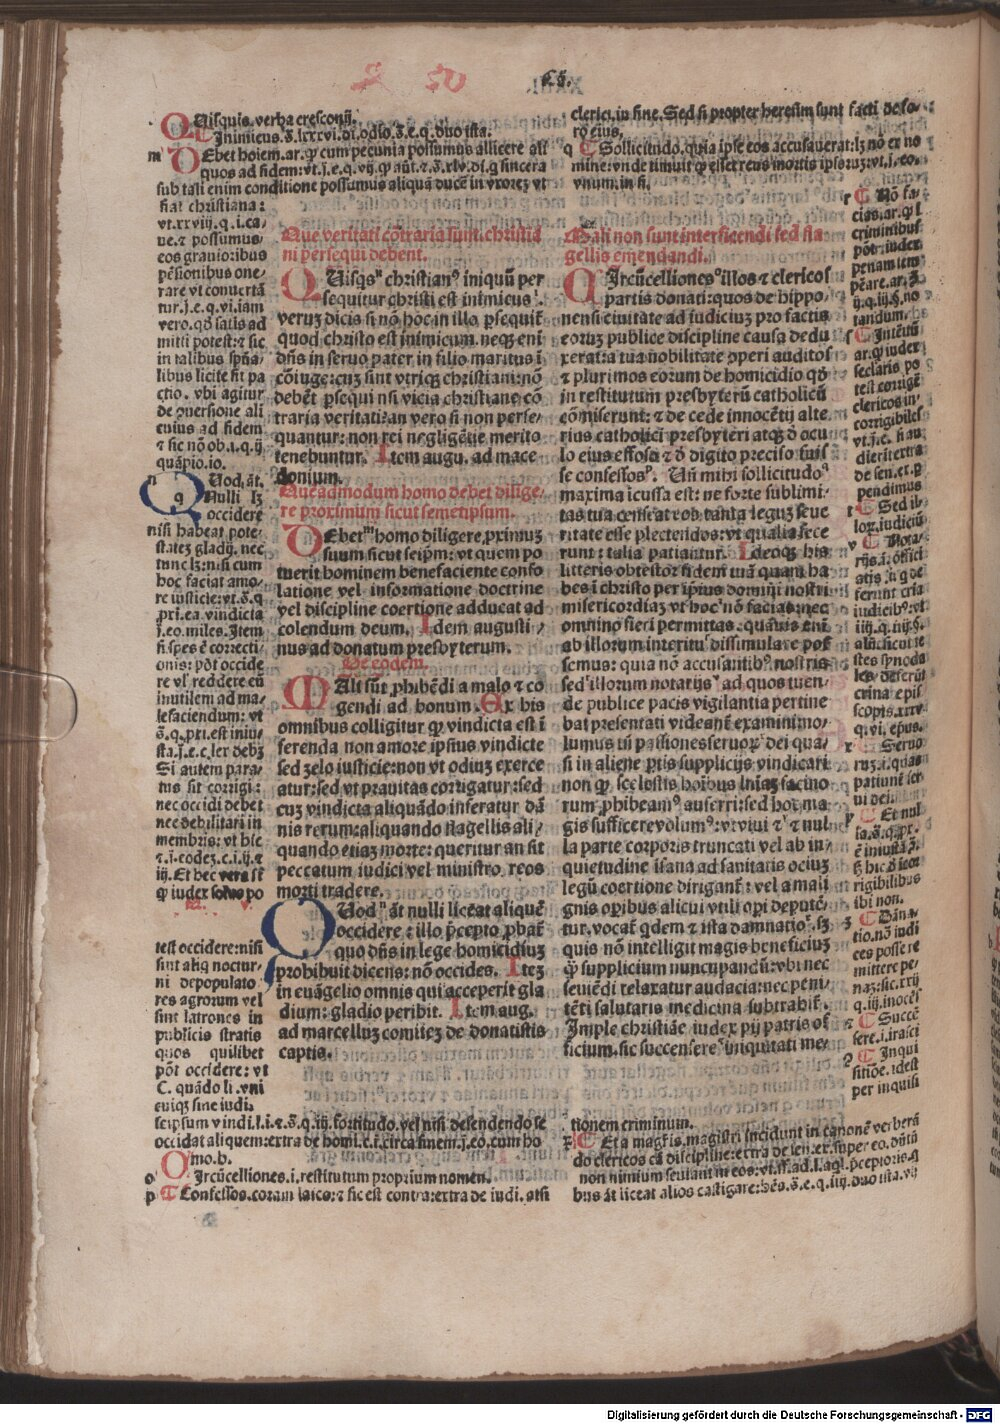 Uisquis. verba cresconij.
Inimicus. s̄. lxxxvi. di. odio. s̄. e. q. duo ista.
Ebet hoīem. ar. ꝙ cum pecunia possumus allicere ali
quos ad fidem: vt. j. e. q. vij.
sub tali enim conditione possumus aliquā ducē in vxorez vt
fiat christiana:
vt. xxviij. q. i. ca
ue. ⁊ possumus
eos grauioribus
pēsionibus one/
rare vt conuertā
tur. j. e. q. vi. iam
vero. qd̄ satis ad
mitti potest: ⁊ sic
in talibus spūa/
libus licite fit pa
ctio. vbi agitur
de ꝯuersione ali
cuius ad fidem
⁊ sic nō ob. i. q. ij
quāpio. io.
Uod. āt.
Nulli lꝫ
occidere
nisi habeat pote/
statez gladij. nec
tunc lꝫ: nisi cum
hoc faciat amo/
re iusticie: vt. s̄. q
pri. ea vindicta
j. eo. miles. Item
si spes ē correcti/
onis: pōt occide
re vl' reddere eū
inutilem ad ma/
lefaciendum: vt
s̄. q. pri. est iniu/
sta. j. e. c. ler debꝫ
Si autem para/
tus sit corrigi:
nec occidi debet
nec debilitari in
membris: vt hic
⁊. i. codez. c. i. ij. ⁊
iij. Et hec vera sūt
ꝙ iudex solus po
test occidere: nisi
sint aliq̄ noctur/
ni depopulato
res agrorum vel
sint latrones in
publicis stratis
quos quilibet
pōt occidere: vt
C. quādo li. vni
cuiqꝫ sine iudi.
seipsum vindi. l. i. ⁊. s̄. q. iij. fortitudo. vel nisi defendendo se
occidat aliquem: extra de homi. c. i. circa finem. j. eo. cum ho
mo. b.
Ircūcelliones. i. restitutum proprium nomen.
Confessos. coram laico: ⁊ sic est contra: extra de iudi. atsi
Que veritati cōtraria sunt. christia
ni persequi debent.
Uisqs christianꝰ iniquū per
sequitur christi est inimicus.
verum dicis si nō hoc in illo ꝑsequit̄
quod christo est inimicum. neqꝫ eni
dn̄s in seruo pater in filio maritus i
cōiuge: cuz sint vtriqꝫ christiani: nō
debēt ꝑsequi nsi vicia christiane cō
traria veritati: an vero si non perse/
quantur: non rei negligētie merito
tenebuntur. Item augu. ad mace
donium.
Queadmodum homo debet dilige/
re proximum sicut semetipsum.
Ebet homo diligere ꝓximuꝫ
suum sicut seipm̄: vt quem po
tuerit hominem beneficiente conso
latione vel informatione doctrine
vel discipline coertione adducat ad
colendum deum. Idem augusti/
nus ad donatum presbyterum.
De eodem.
Ali sūt ꝓhibēdi a malo ⁊ co
gendi ad bonum. Ex his
omnibus colligitur ꝙ vindicta est i
ferenda non amore ipsius vindicte
sed zelo iusticie: non vt odiuꝫ exerce
atur: sed vt prauitas corrigatur: sed
cuꝫ vindicta aliquādo inferatur dā
nis rerum: aliquando flagellis ali/
quando etiaꝫ morte: queritur an sit
peccatum iudici vel ministro reos
morti tradere.
Uod āt nulli liceat aliquē
occidere: illo ꝑcepto ꝓbat̄
quo dn̄s in lege homicidiuꝫ
prohibuit dicens: nō occides. Iteꝫ
in euāgelio omnis qui acceperit gla
dium: gladio peribit. Item aug.
ad marcelluꝫ comiteꝫ de donatistis
captis.
clerici. in fine. Sed si propter heresim sunt facti de fo/
ro eius.
Sollicitudo. quia ipse eos accusauerat: lꝫ nō ex no
mine: vnde timuit ꝙ esset reus mortis ipsoruꝫ: vt. j. eo.
vnum. in fi.
Mali non sunt interficiendi sed fla
gellis emendandi.
Ircūcellionesꝰ illos ⁊ clericos
partis donati: quos de hippo
nensi ciuitate ad iudiciuꝫ pro factis
eoruꝫ publice discipline causa dedu
xerat: a tua nobilitate operi auditos
⁊ plurimos eorum de homicidio qd̄
in restitutum presbyterū catholicū
cōmiserunt: ⁊ de cede innocētij alte
rius catholici presbyteri atqꝫ d̄ ocu
lo eius effoso ⁊ d̄ digito preciso fuis
se confessos. Un̄ mihi sollicitudo
maxima icussa est: ne forte sublimi
tas tua censeat eos tanta leguꝫ seue
ritate esse plectendos: vt qualia fece
runt: talia patiantur. Ideoqꝫ his
litteris obtestor fidem tuā quam ha
bes i christo per ipsius domini nostri
misericordiaꝫ vt hoc nō facias: nec
omnino fieri permittas. quāuis eni
ab illorum interitu dissimulare pos
semus: quia nō accusantibꝰ nostris
sed illorum notarijs ad quos tuen/
de publice pacis vigilantia pertine
bat presentati videant̄: examinimo/
lumus tn̄ passiones seruoꝝ dei qua/
si in aliene ꝑtis supplicijs vindicari
non ꝙ scelestis hoībus lnīaꝫ facino
rum ꝓhibeamꝰ auferri: sed hoc ma
gis sufficere volumꝰ: vt viui ⁊ nul
la parte corporis truncati vel ab in/
quietudine isana ad sanitatis ociuꝫ
legū coertione dirigant̄: vel a mali
gnis oꝑibus alicui vtili oꝑi deputē/
tur. vocat̄ qdem ⁊ ista damnatio. sꝫ
quis nō intelligit magis beneficiuꝫ
ꝙ̄ supplicium nuncupandū: vbi nec
seuiēdi relaxatur audacia: nec peni/
tēti salutaris medicina subtrahit̄.
Imple christiāe iudex pij patris of
ficium. sic succensere iniquitati me/
Nō fa/
cias. ar. ꝙ i
criminibus
pōt iudex
penam tem
pēare. ar. s̄.
ij. q. iij. §. no
tandum.
Interitu
ar. ꝙ iudex
seclaris po
test corrigē
clericos in/
corrigibiles
vt. j. c. si au
dierit extra
de sen. et. ꝙ
pendimus
Sed il
loꝝ. iudiciū
Nota/
rijs. a. offici
alis
iudicibꝰ: vt
iiij. q. iiij. §.
stes synoda
les. deferūt
crīna epis
scopis. xxxv
q. vi. epus.
Seruo
rum. i. quas
patiunt̄ ser
ui dei.
Et nul
la. s̄. q. pr.
ē iniusta. s̄.
rigibilibus
ibi non.
Dāna
tio. nō iudi
ces posse re
mittere pe/
naꝫ: sic. xxij
q. iij. inoceꝰ
Succē
sere. i. irasci
Inqui
sitiōe. idest
per inquisi
tionem criminum.
Et a magr̄is. magistri incidunt in canonē verberā
do clericos cā discipline: extra de sen. ex. super eo. dūtn̄
non nimium seuiant in eos: vt. ff. ad. l. aql. p̄ceptoris. ꝗ
bus āt liceat alios castigare: hēs. s̄. e. q. iiij. duo ista. vij
Digitalisierung gefördert durch die Deutsche Forschungsgemeinschaft - DFG